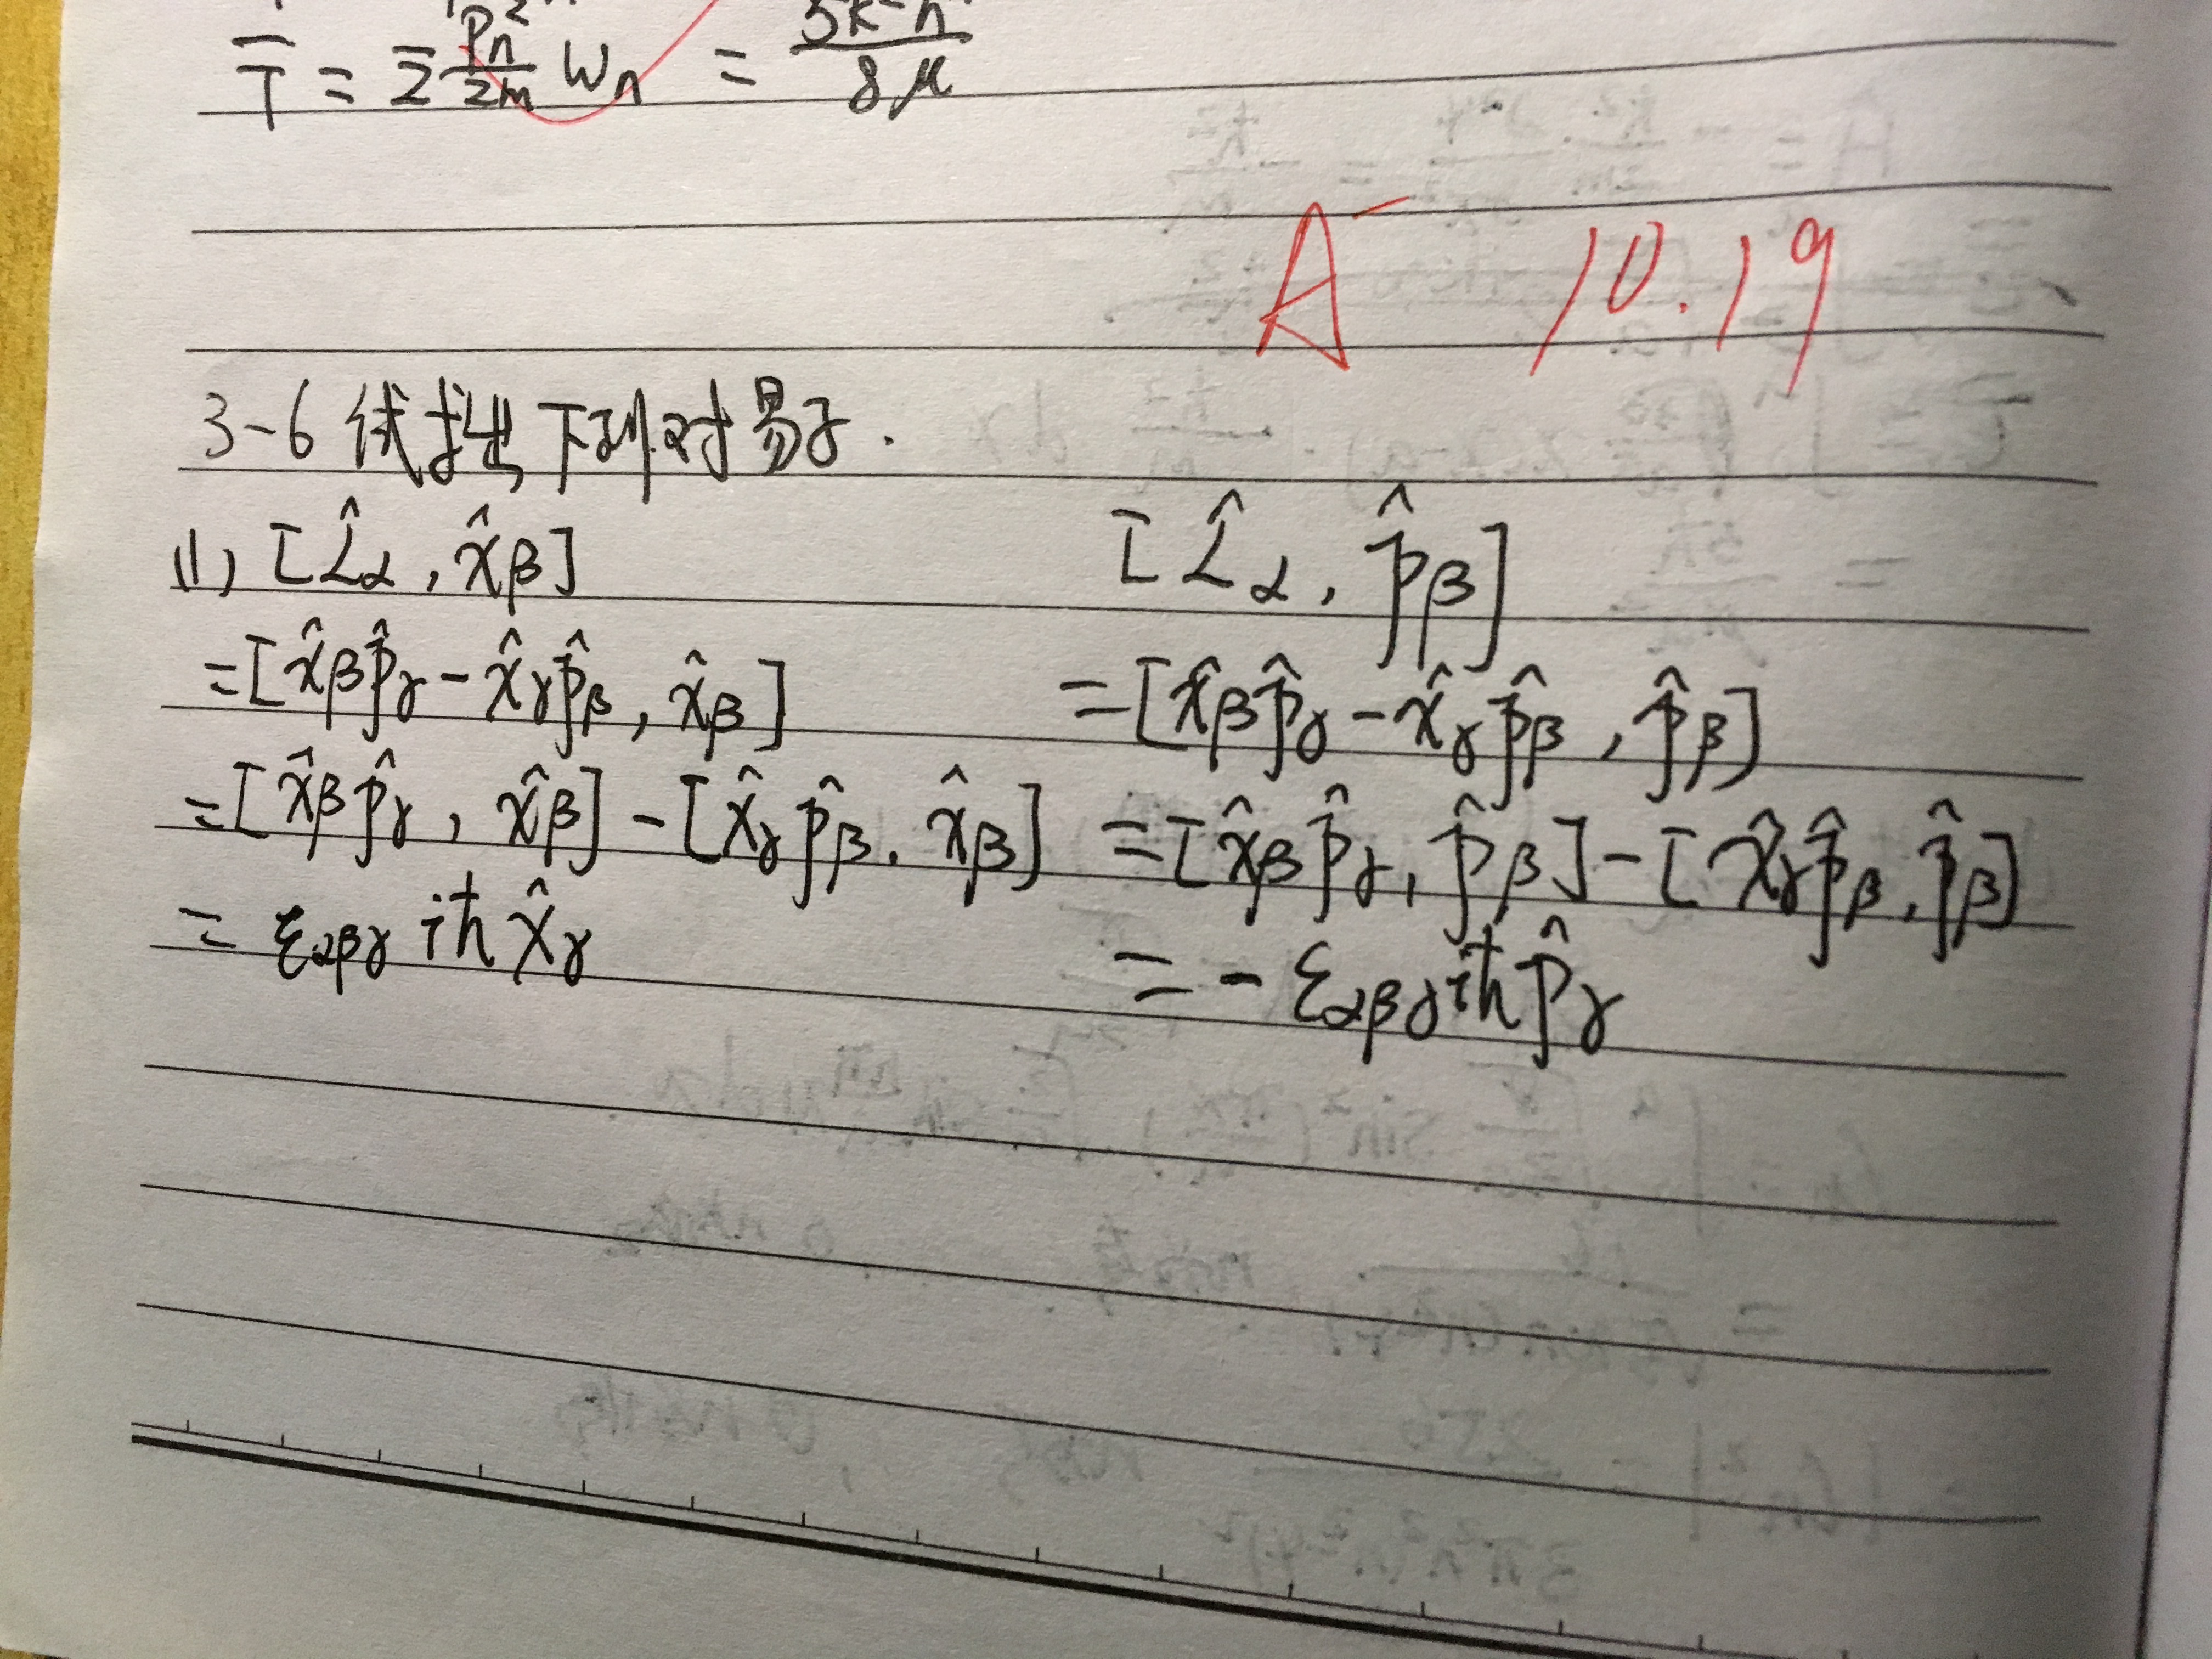 T̄ = Σ pₙ²/2m Wₙ = 5k²ħ²/8μ
A⁻ 10.19
3-6 试求出下列对易子.
(1) [L̂α, x̂β]
= [x̂βp̂γ - x̂γp̂β, x̂β]
= [x̂βp̂γ, x̂β] - [x̂γp̂β, x̂β]
= εαβγ iħ x̂γ
[L̂α, p̂β]
= [x̂βp̂γ - x̂γp̂β, p̂β]
= [x̂βp̂γ, p̂β] - [x̂γp̂β, p̂β]
= - εαβγ iħ p̂γ